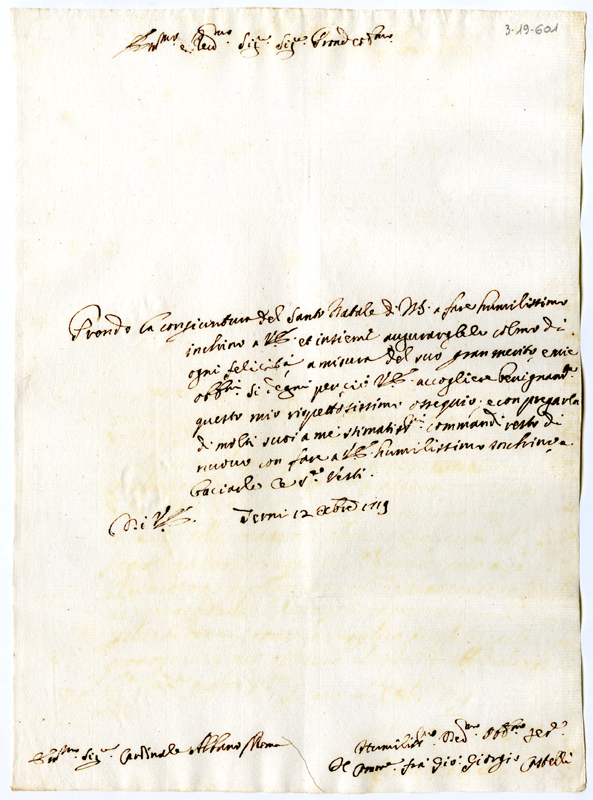 3-19-601
Em.mo e Rev.mo Sig.e Sig.e Pron Col.mo
Prendo la congiuntura del Santo Natale di N.S. a fare humilissimo
inchino a V.E. et insieme augurargliele colmo di
ogni felicità a misura del suo gran merito e mie
obb.ni. Si degni perciò V.E. accogliere benignam.te
questo mio rispettosissimo ossequio, e con pregarla
di molti suoi a me stimatis.mi commandi resto di
nuovo con fare a V.E. humilissimo inchino, e
baciarle le S.re Vesti.
Di V.E. Terni 12 Xbre 1719
Em.mo Sig.e Cardinale Albano Roma
Humiliss.mo Dev.mo Obb.mo Ser.e
Il Comm.e fra Gio: Giorgio Castelli